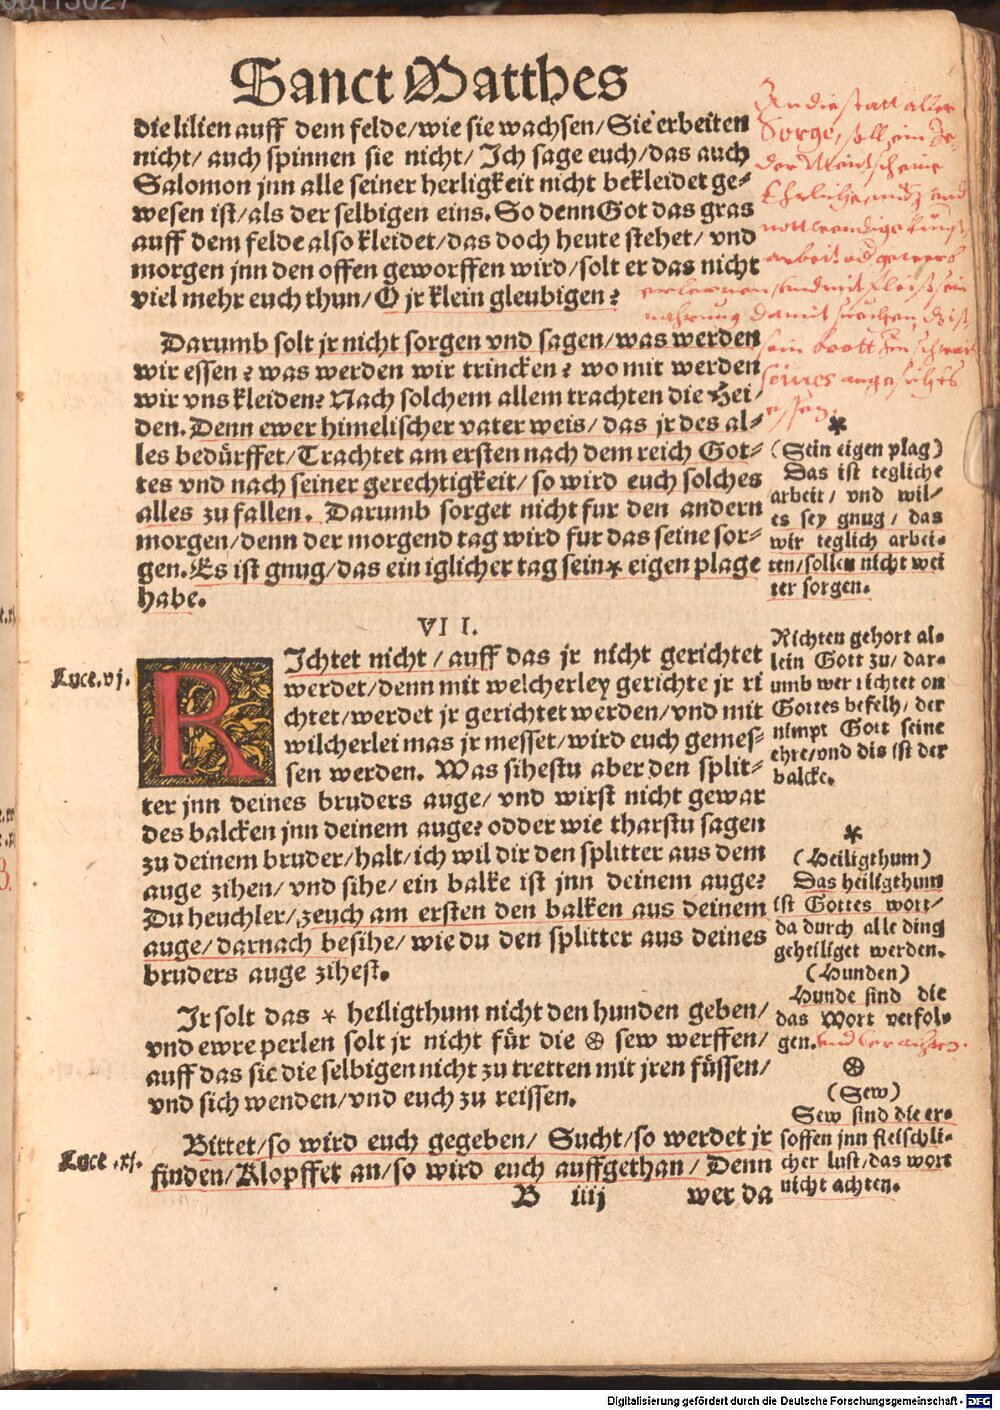 Sanct Matthes
die lilien auff dem felde/wie sie wachsen/Sie erbeiten
nicht/ auch spinnen sie nicht/ Ich sage euch/das auch
Salomon jnn alle seiner herligkeit nicht bekleidet ge⸗
wesen ist/als der selbigen eins. So denn Got das gras
auff dem felde also kleidet/das doch heute stehet/ vnd
morgen jnn den offen geworffen wird/solt er das nicht
viel mehr euch thun/O jr klein gleubigen?
Darumb solt jr nicht sorgen vnd sagen/was werden
wir essen? was werden wir trincken? wo mit werden
wir vns kleiden? Nach solchem allem trachten die Hei/
den. Denn ewer himelischer vater weis/das jr des al⸗
les bedürffet/Trachtet am ersten nach dem reich Got⸗
tes vnd nach seiner gerechtigkeit/so wird euch solches
alles zu fallen. Darumb sorget nicht fur den andern
morgen/denn der morgend tag wird fur das seine sor⸗
gen. Es ist gnug/das ein iglicher tag sein* eigen plage
habe.
VII.
RIchtet nicht/auff das jr nicht gerichtet
werdet/denn mit welcherley gerichte jr ri
chtet/werdet jr gerichtet werden/vnd mit
wilcherlei mas jr messet/wird euch gemes⸗
sen werden. Was sihestu aber den split⸗
ter jnn deines bruders auge/ vnd wirst nicht gewar
des balcken jnn deinem auge? odder wie tharstu sagen
zu deinem bruder/halt/ich wil dir den splitter aus dem
auge zihen/vnd sihe/ein balke ist jnn deinem auge?
Du heuchler/zeuch am ersten den balken aus deinem
auge/darnach besihe/wie du den splitter aus deines
bruders auge zihest.
Ir solt das * heiligthum nicht den hunden geben/
vnd ewre perlen solt jr nicht für die ⊗ sew werffen/
auff das sie die selbigen nicht zu tretten mit jren füssen/
vnd sich wenden/vnd euch zu reissen.
Bittet/so wird euch gegeben/ Sucht/so werdet jr
finden/Klopffet an/so wird euch auffgethan/Denn
B iiij wer da
Luce.vj.
Luce.xj.
An die statt aller
Sorge, soll ein Je,
der Mentsch eine
Ehrliche, nutz und
nottwendige kunst
arbeit
erlernen, und mit fleiß, sein
nahrung damit suchen, dz ist,
sein brott im schwais
seines angesichts
essen.
*
(Sein eigen plag)
Das ist tegliche
arbeit/ vnd wil/
es sey gnug/ das
wir teglich arbei⸗
ten/sollen nicht wei
ter sorgen.
Richten gehort al⸗
lein Gott zu/ dar⸗
umb wer richtet on
Gottes befelh/ der
nimpt Gott seine
ehre/vnd dis ist der
balcke.
*
(Heiligthum)
Das heiligthum
ist Gottes wort/
da durch alle ding
geheiliget werden.
(Hunden)
Hunde sind die
das Wort verfol⸗
gen. und verachten.
⊗
(Sew)
Sew sind die er⸗
soffen jnn fleischli⸗
cher lust/das wort
nicht achten.
Digitalisierung gefördert durch die Deutsche Forschungsgemeinschaft - DFG